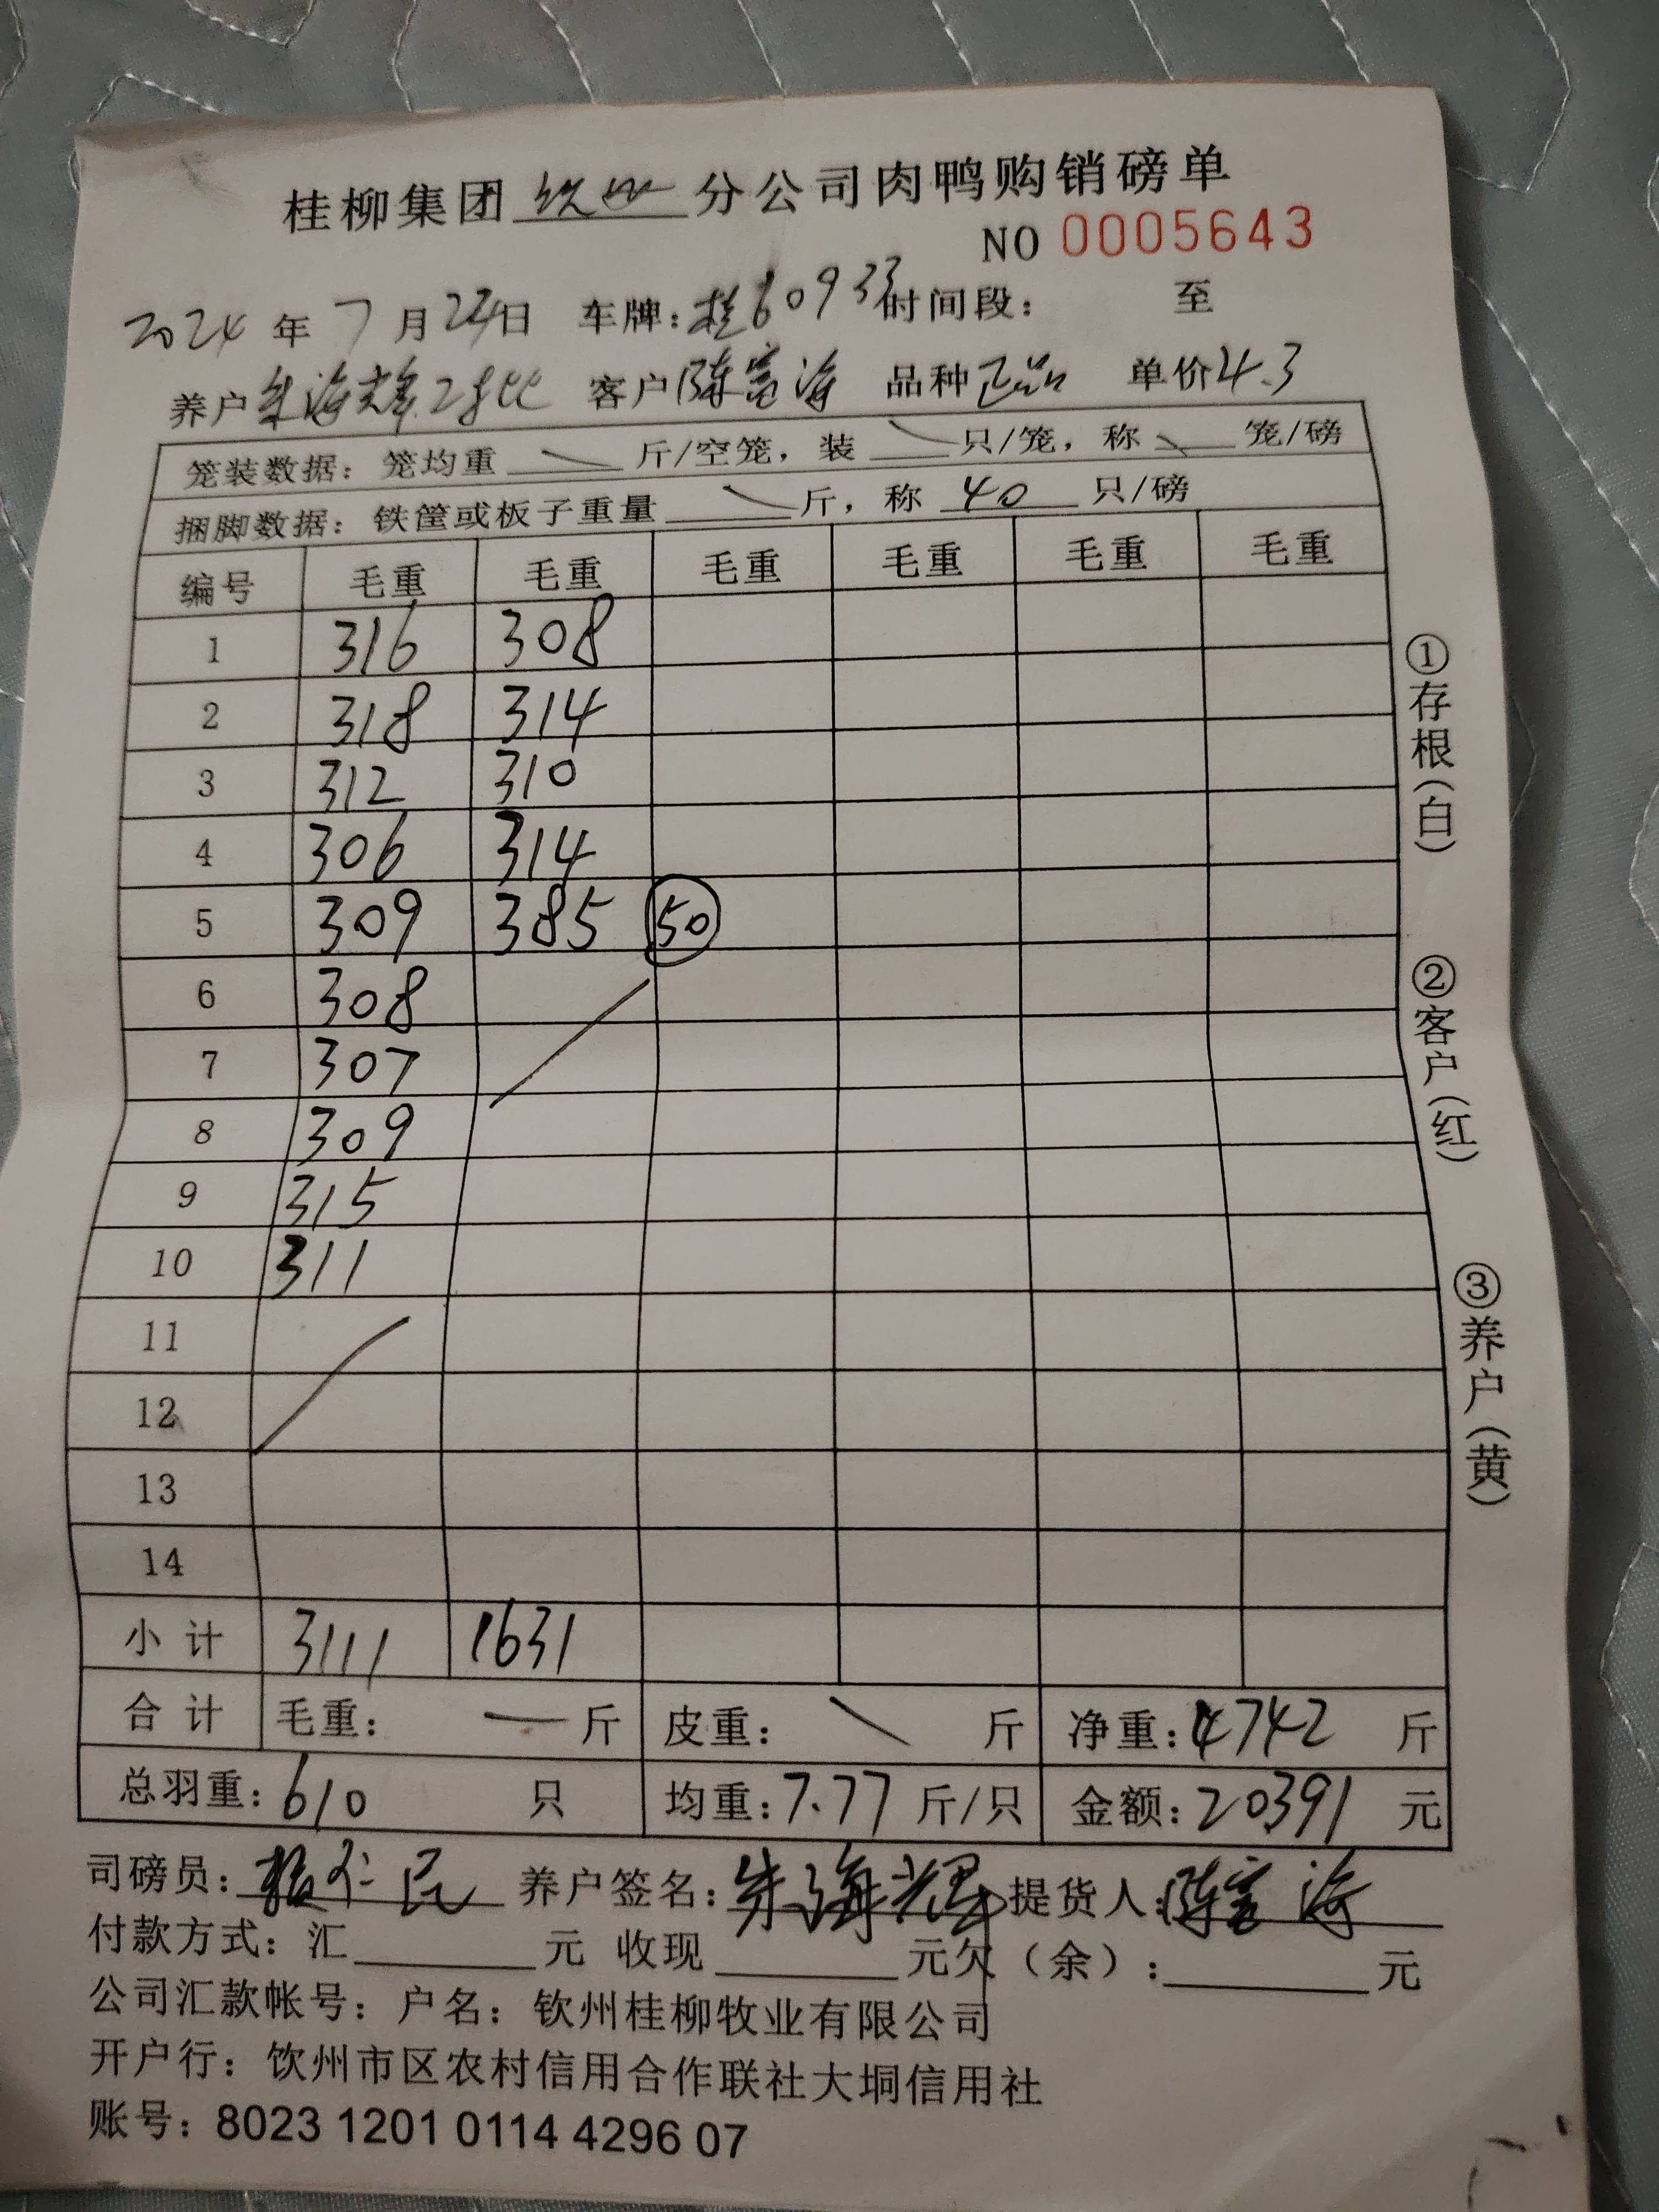 桂柳集团 钦州 分公司肉鸭购销磅单
NO 0005643
2024 年 7 月 24 日 车牌: 桂 60933 时间段: 至
养户 朱海 2批 客户 陈富海 品种 正品 单价 4.3
笼装数据: 笼均重 斤/空笼, 装 只/笼, 称 笼/磅
捆脚数据: 铁筐或板子重量 斤, 称 40 只/磅
编号 毛重 毛重 毛重 毛重 毛重 毛重
1 316 308
2 318 314
3 312 310
4 306 314
5 309 385 50
6 308
7 307
8 309
9 315
10 311
11
12
13
14
小计 3111 1631
合计 毛重: 一 斤 皮重: 斤 净重: 4742 斤
总羽重: 610 只 均重: 7.77 斤/只 金额: 20391 元
司磅员: 仁民 养户签名: 朱海辉 提货人: 陈富海
付款方式: 汇 元 收现 元欠(余): 元
公司汇款帐号: 户名: 钦州桂柳牧业有限公司
开户行: 钦州市区农村信用合作联社大垌信用社
账号: 8023 1201 0114 4296 07
①存根(白)
②客户(红)
③养户(黄)